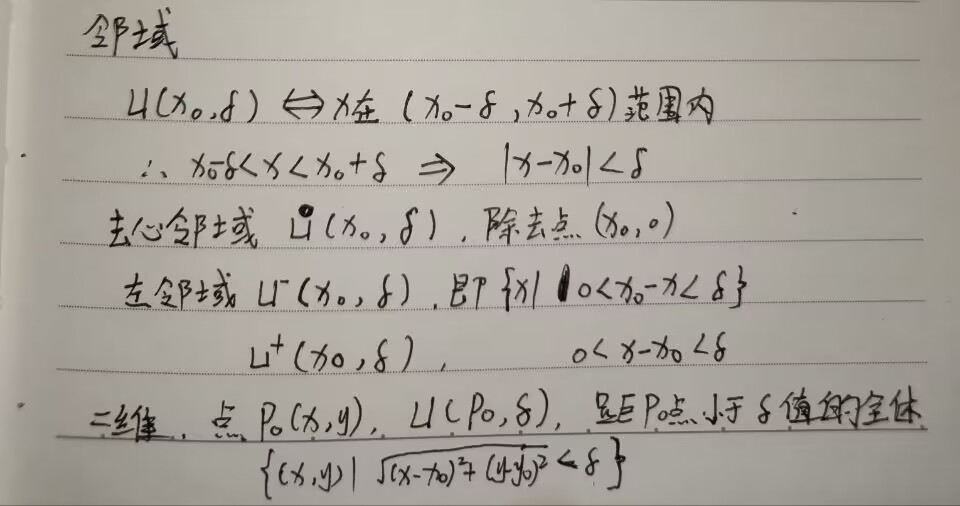 邻域
U(x₀,δ) ⇔ x在 (x₀-δ,x₀+δ)范围内
∴ x₀-δ<x<x₀+δ ⇒ |x-x₀|<δ
去心邻域 Ů(x₀,δ),除去点(x₀,0)
左邻域 U⁻(x₀,δ),即{x|0<x₀-x<δ}
U⁺(x₀,δ), 0<x-x₀<δ
二维,点P₀(x,y),U(P₀,δ),距P₀点小于δ值的全体
{(x,y)|√((x-x₀)²+(y-y₀)²)<δ}